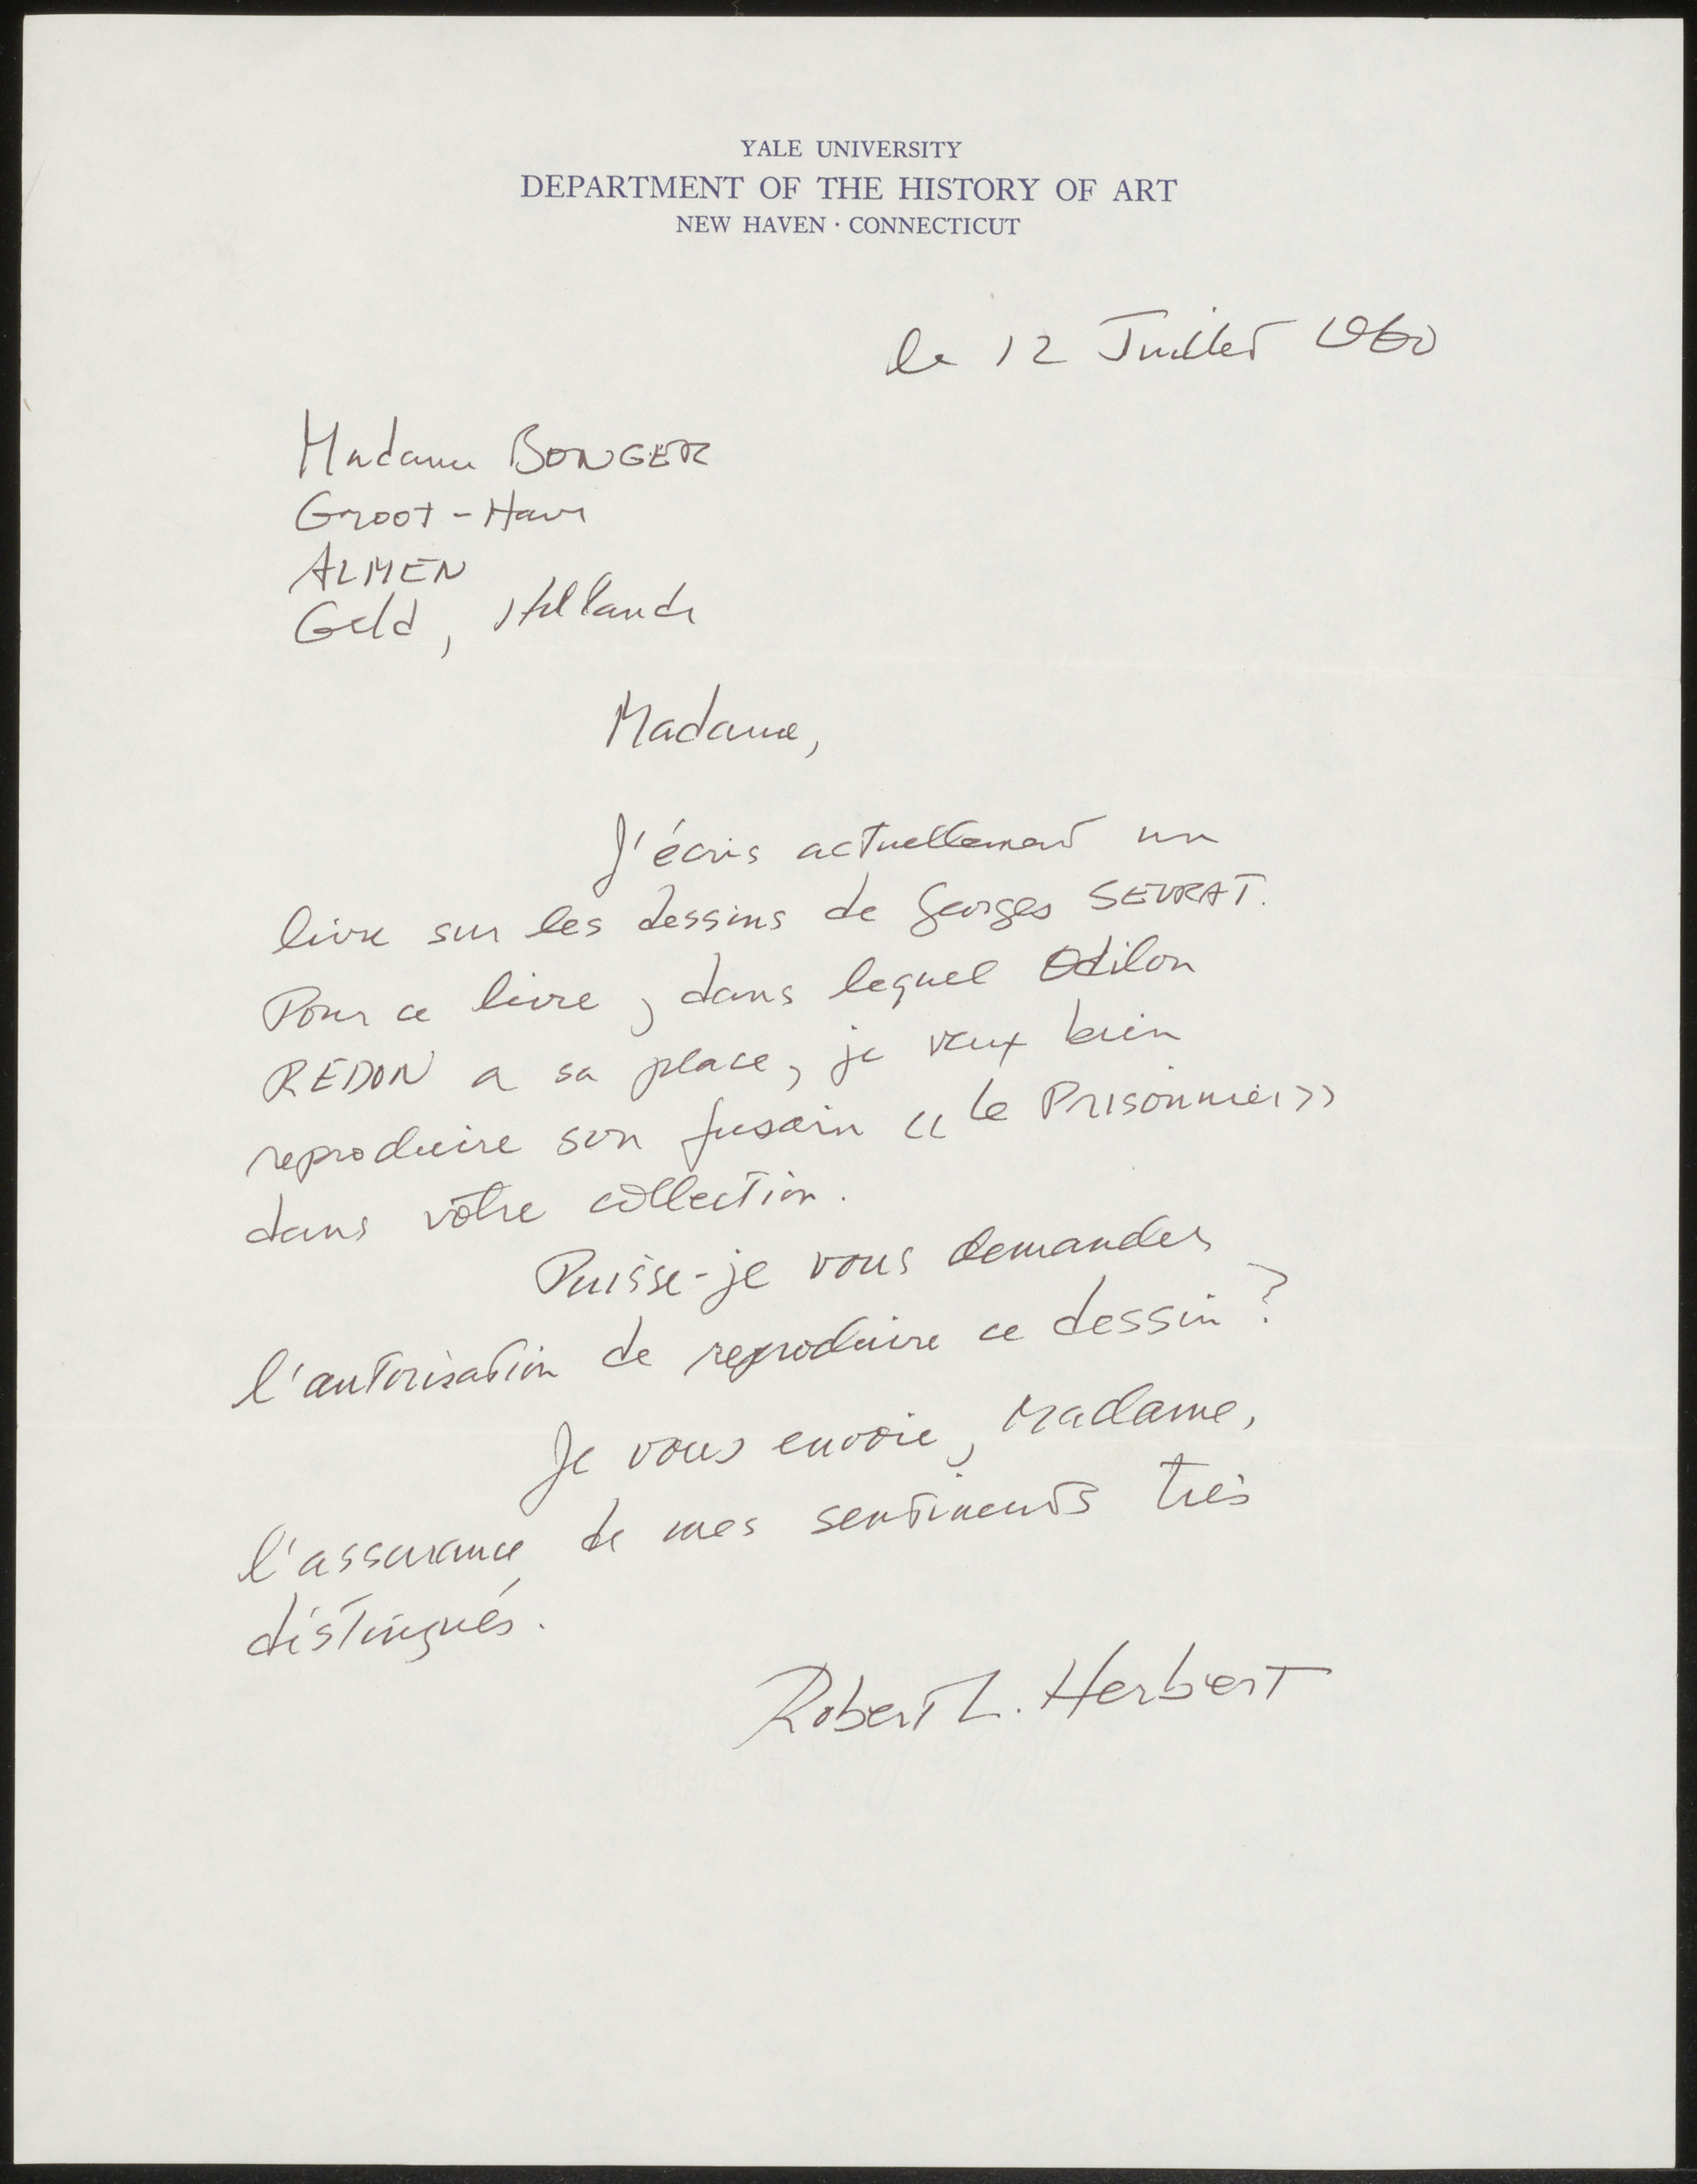 YALE UNIVERSITY
DEPARTMENT OF THE HISTORY OF ART
NEW HAVEN · CONNECTICUT
le 12 Juillet 1960
Madame BONGER
Groot-Have
ALMEN
Geld, Hollande
Madame,
J'écris actuellement un
livre sur les dessins de Georges SEURAT.
Pour ce livre, dans lequel Odilon
REDON a sa place, je veux bien
reproduire son fusain « le Prisonnier »
dans vôtre collection.
Puisse-je vous demander
l'autorisation de reproduire ce dessin?
Je vous envoie, Madame,
l'assurance de mes sentiments très
distingués.
Robert L. Herbert